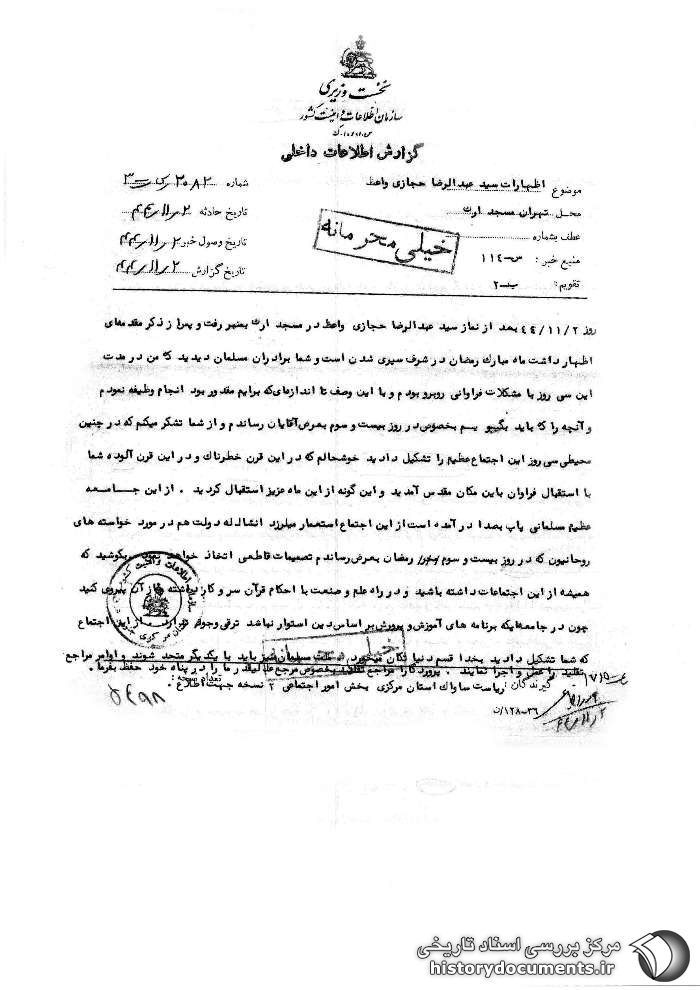 نخست وزیری
سازمان اطلاعات و امنیت کشور
س.ا.و.ا.ک
گزارش اطلاعات داخلی
موضوع اظهارات سید عبدالرضا حجازی واعظ
شماره ۲۰۸۲
محل تهران مسجد ارک
تاریخ حادثه ۴۴/۱۱/۲
عطف بشماره
تاریخ وصول خبر ۴۴/۱۱/۲
منبع خبر: س-۱۱۴
تاریخ گزارش ۴۴/۱۱/۲
تقویم: ب-۲
خیلی محرمانه
روز ۴۴/۱۱/۲ بعد از نماز سید عبدالرضا حجازی واعظ در مسجد ارک بمنبر رفت و پس از ذکر مقدمه‌ای
اظهار داشت ماه مبارک رمضان در شرف سپری شدن است و شما برادران مسلمان دیدید که من در مدت
این سی روز با مشکلات فراوانی روبرو بودم و با این وصف تا اندازه‌ای که برایم مقدور بود انجام وظیفه نمودم
و آنچه را که باید بگیو یسم بخصوص در روز بیست و سوم بعرض آقایان رساندم و از شما تشکر میکنم که در چنین
محیطی سی روز این اجتماع عظیم را تشکیل دادید خوشحالم که در این قرن خطرناک و در این قرن آلوده شما
با استقبال فراوان باین مکان مقدس آمدید و این گونه از این ماه عزیز استقبال کردید . از این جامعه
عظیم مسلمانی پاپ بصدا در آمده است از این اجتماع استعمار میلرزد انشاله دولت هم در مورد خواسته های
روحانیون که در روز بیست و سوم رمضان بعرض رساندم تصمیمات قاطعی اتخاذ خواهد بکوشید که
همیشه از این اجتماعات داشته باشید و در راه علم و صنعت با احکام قرآن سر و کار داشته از آن پیروی کنید
چون در جامعه‌ایکه برنامه های آموزش و پرورش بر اساس دین استوار نباشد ترقی وجود ندارد از این اجتماع
که شما تشکیل دادید بخدا قسم دنیا تکان میخورد ملت مسلمان نیز باید با یکدیگر متحد شوند و اوامر مراجع
تقلید را عمل و اجرا نمایند . پروردگارا مراجع تقلید بخصوص مرجع عالیقدر ما را در پناه خود حفظ بفرما .
خیلی
گیرندگان: ریاست ساواک استان مرکزی بخش امور اجتماعی ۲ نسخه جهت اطلاع .
تعداد نسخه:
۱۲۸-۳۶/ن
۴۴/۱۱/۲
مرکز بررسی اسناد تاریخی
historydocuments.ir